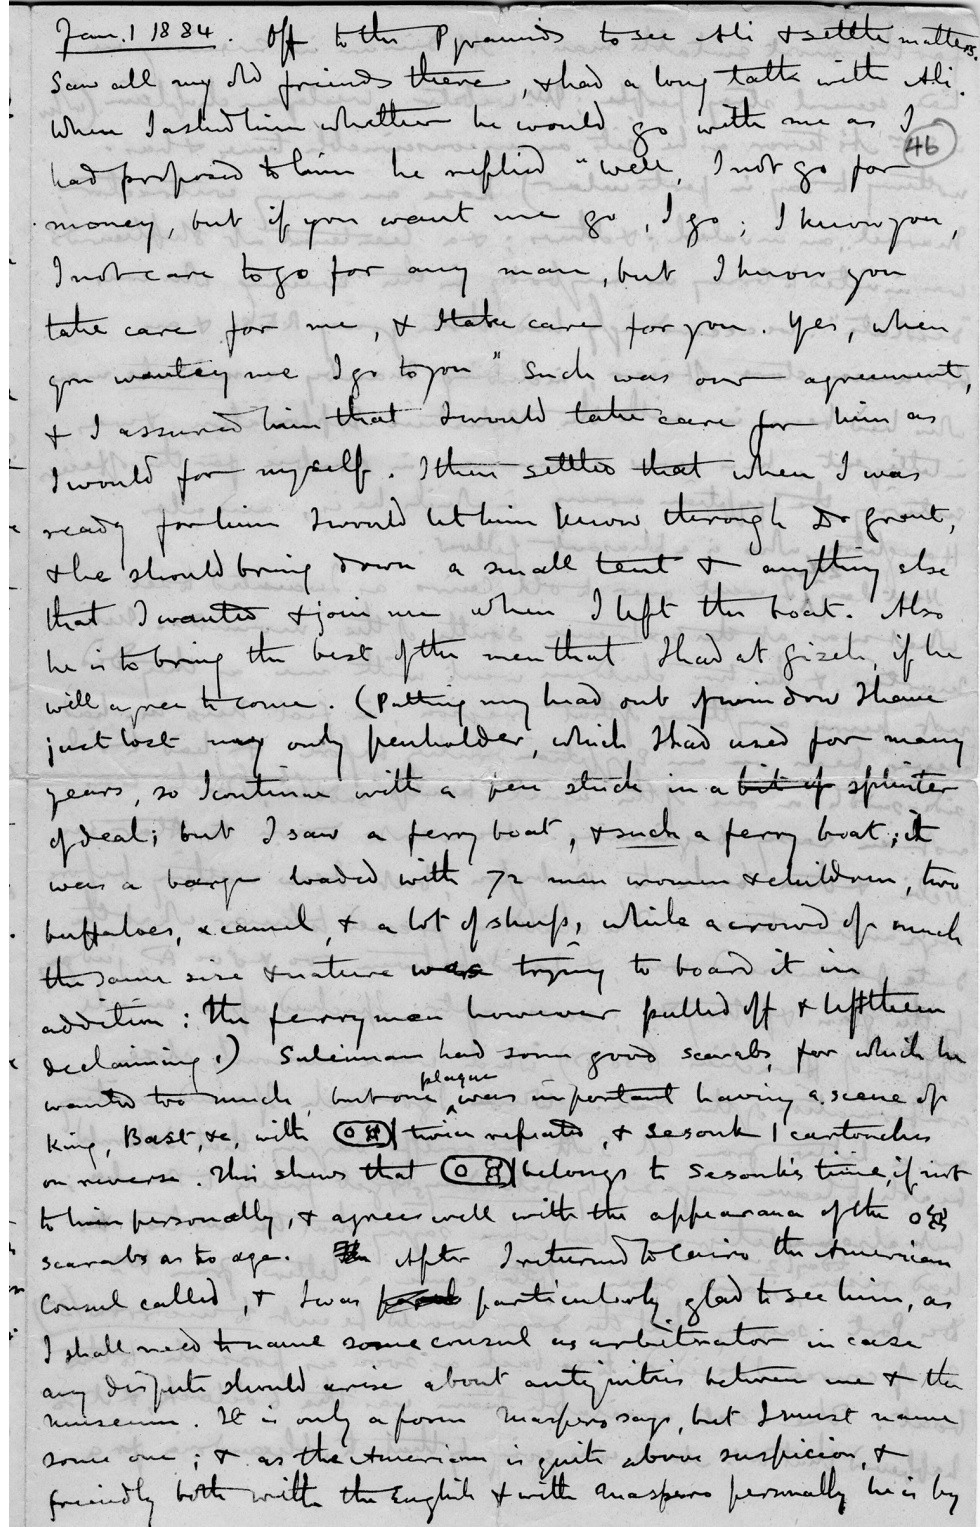 Jan. 1 1884. Off to the Pyramids to see Ali & settle matters.
Saw all my old friends there, & had a long talk with Ali.
When I asked him whether he would go with me as I
46
had proposed to him he replied "well, I not go for
money, but if you want me go, I go; I know you,
I not care to go for any man, but I know you
take care for me, & I take care for you. Yes, when
you wantey me I go to you" Such was our agreement,
& I assured him that I would take care for him as
I would for myself. I then settled that when I was
ready for him I would let him know through Dr Grant,
& he should bring down a small tent & anything else
that I wanted & join me when I left the boat. Also
he is to bring the best of the men that I had at Gizeh, if he
will agree to come. (Putting my head out of window I have
just lost my only penholder, which I had used for many
years, so I continue with a pen stuck in a bit of splinter
of deal; but I saw a ferry boat, & such a ferry boat; it
was a barge loaded with 72 men women & children, two
buffaloes, a camel, & a lot of sheep, while a crowd of much
the same size & nature was trying to board it in
addition: the ferrymen however pulled off & left them
declaiming.) Suleiman had some good scarabs, for which he
wanted too much, but one plaque was important having a scene of
King, Bast, &c, with twice repeated, & Sesonk I cartouches
on reverse. This shews that belongs to Sesonk's time, if not
to him personally, & agrees well with the appearance of the
scarabs as to age. After I returned to Cairo the American
Consul called, & I was particularly glad to see him, as
I shall need to name some consul as arbitrator in case
any dispute should arise about antiquities between me & the
museum. It is only a form Maspero says, but I must name
some one; & as the American is quite above suspicion, &
friendly both with the English & with Maspero personally he is by